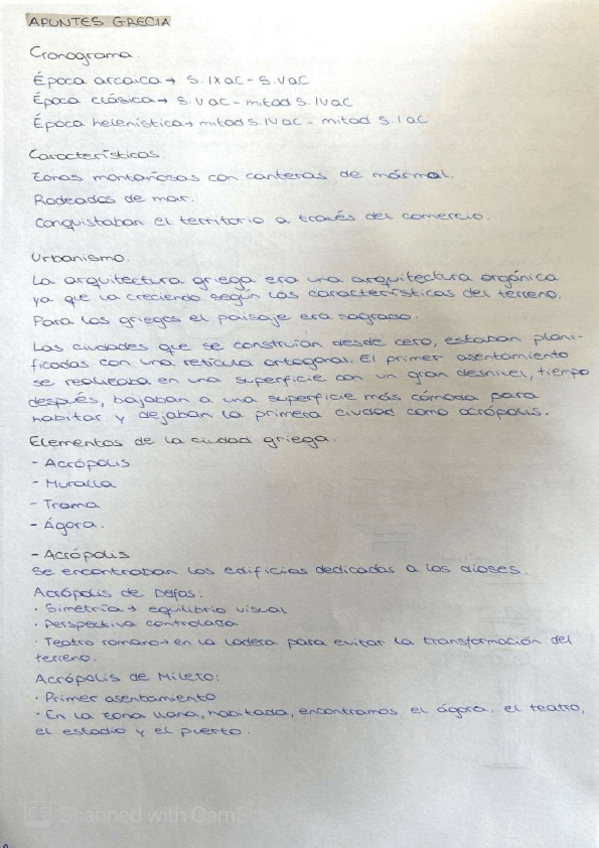 APUNTES GRECIA
Cronograma.
Época arcaica → S. IX aC - S. V aC
Época clásica → S. V aC - mitad S. IV aC
Época helenística → mitad S. IV aC - mitad S. I aC
Características.
Zonas montañosas con canteras de mármol.
Rodeados de mar.
Conquistaban el territorio a través del comercio.
Urbanismo.
La arquitectura griega era una arquitectura orgánica
ya que va creciendo según las características del terreno.
Para los griegos el paisaje era sagrado.
Las ciudades que se construían desde cero, estaban plani-
ficadas con una retícula ortogonal. El primer asentamiento
se realizaba en una superficie con un gran desnivel, tiempo
después, bajaban a una superficie más cómoda para
habitar y dejaban la primera ciudad como acrópolis.
Elementos de la ciudad griega.
- Acrópolis
- Muralla
- Trama
- Ágora.
- Acrópolis
Se encontraban los edificios dedicados a los dioses.
Acrópolis de Delfos:
· Simetría → equilibrio visual
· Perspectiva controlada
· Teatro romano → en la ladera para evitar la transformación del
terreno.
Acrópolis de Mileto:
· Primer asentamiento
· En la zona llana, habitada, encontramos el ágora, el teatro,
el estadio y el puerto.
CS Scanned with CamS